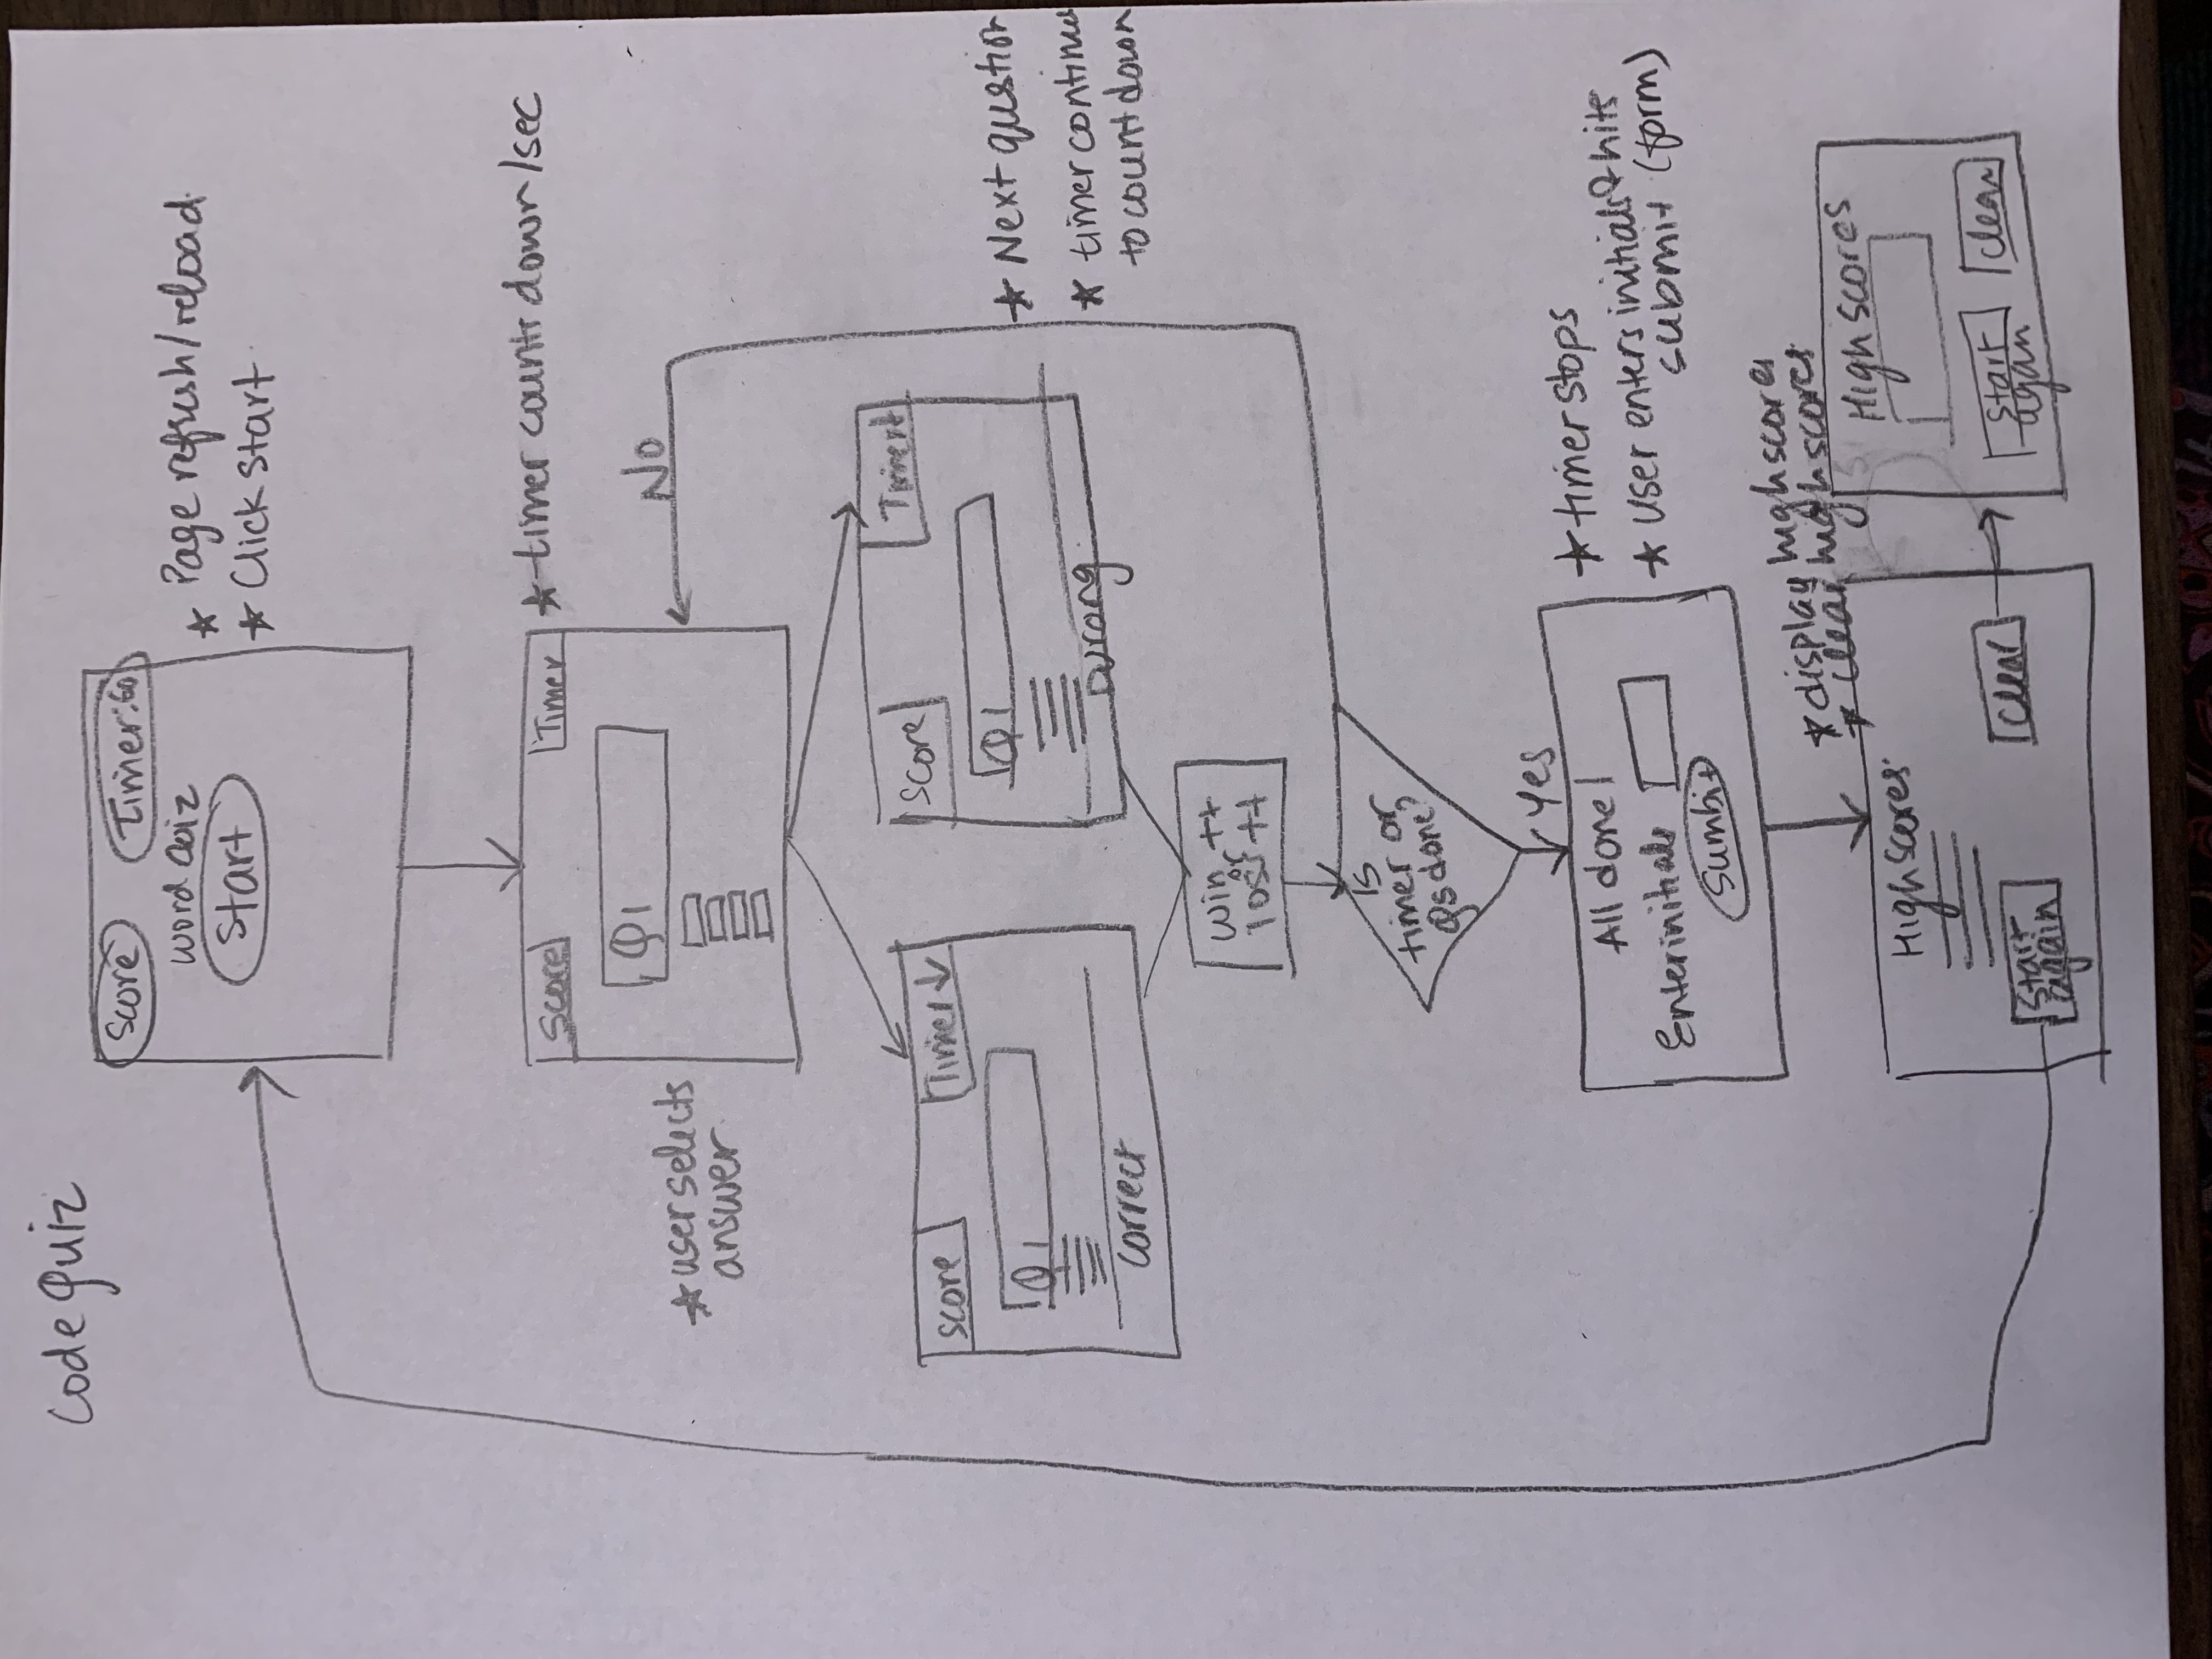 Code Quiz
Score
Timer:60
Word Quiz
Start
★ Page refresh/reload
★ Click start
Score
Timer
★ timer counts down/sec
Q1
No
★ user selects
answer
Score
Timer ↓
Q1
Correct
Score
Q1
wrong
★ Next qustion
★ timer continues
to count down
win ++
or
loss ++
Is
timer or
Qs done?
Yes
All done!
Enter initials
Sumbit
★ timer stops
★ User enters initials & hits
submit (form)
★ display high scores
★ clear high scores
High Scores
Start
again
Clear
High Scores
Start
again
Clear